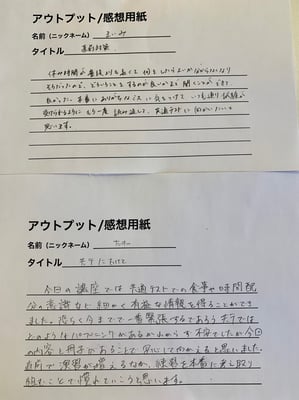 アウトプット/感想用紙
名前（ニックネーム） まいみ
タイトル 直前対策
休み時間が普段よりも長くて何をしたらよいか分からなくなり
そうだったので、どういうことをするのが良いかまで聞くことができて
良かった。本番にありがちなミスに気をつけて、いつも通り試験が
受けられるようにもう一度読み返して、共通テストに向かいたいと
思います。
アウトプット/感想用紙
名前（ニックネーム）
タイトル 共テにむけて
今日の講座では共通テストでの食事や時間配
分の意識など細かく有益な情報を得ることができ
ました。恐らく今までで一番緊張するであろう共テでは
どのようなハプニングがあるかわからず不安でしたが今日
の内容と冊子があることで安心して向かえると思いました。
直前で演習が増えるなか、演習を本番に見し取り
組むことで慣れていこうと思います。